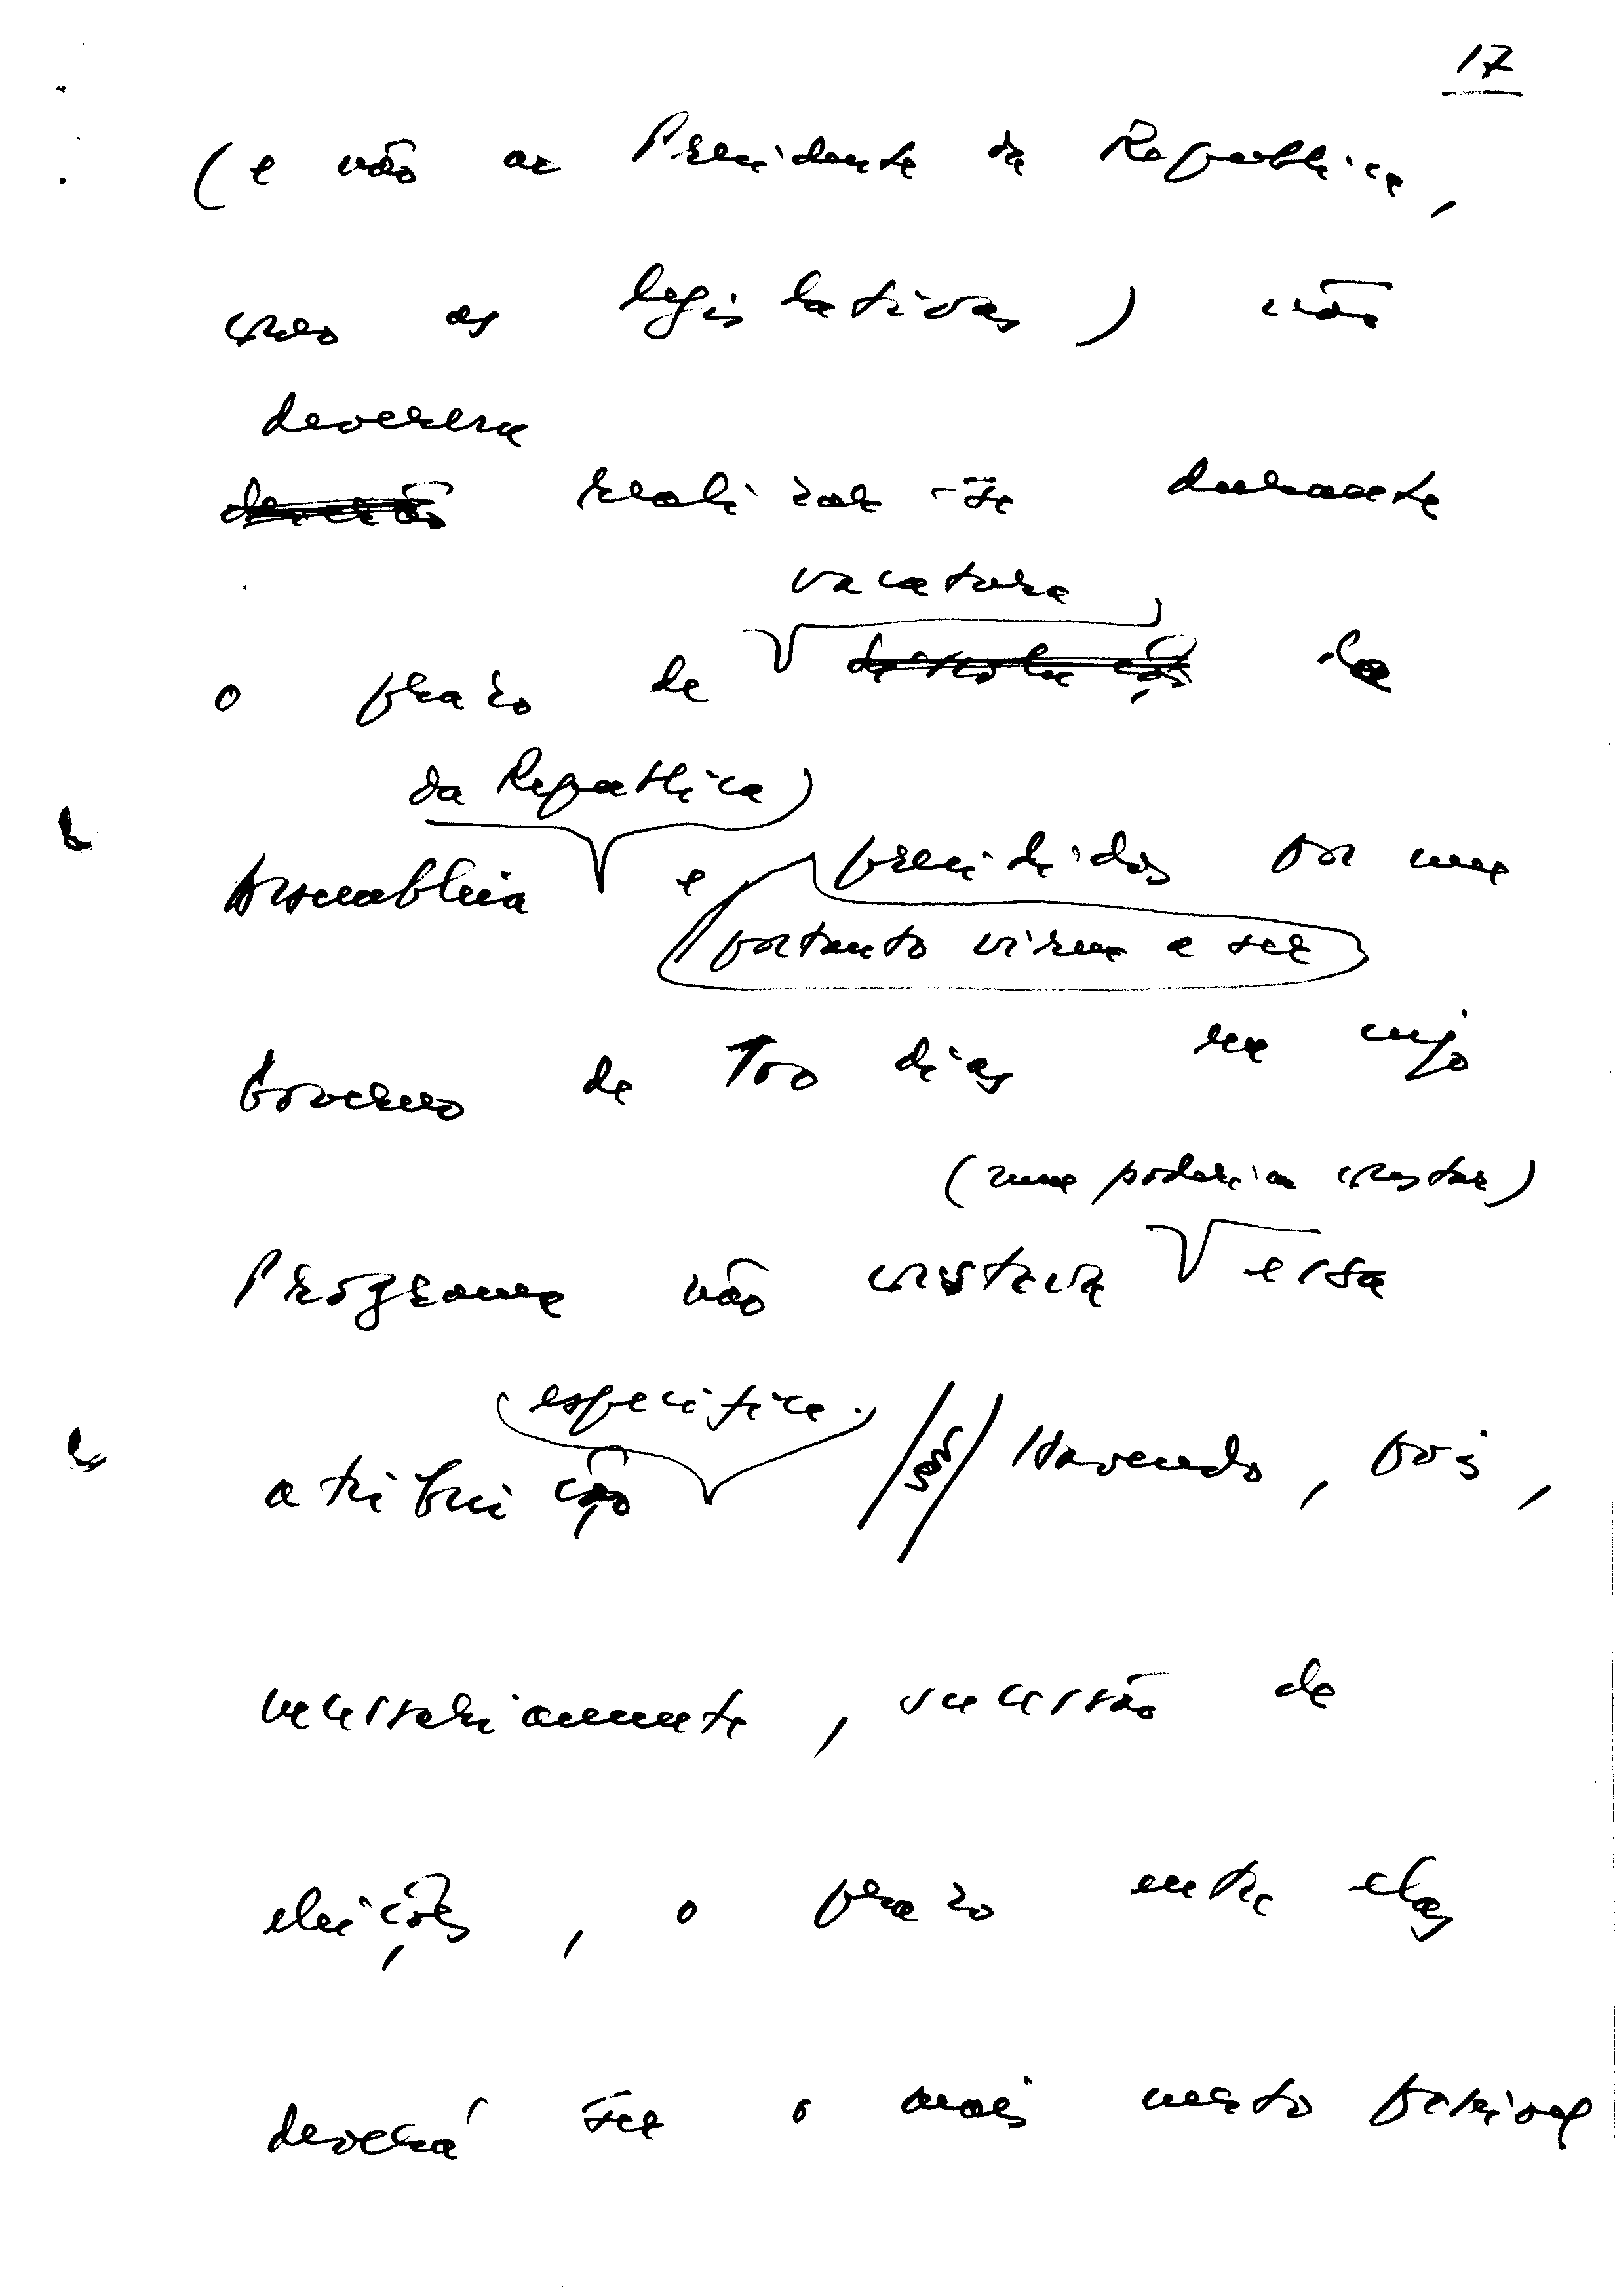 17
(e não ao Presidente da República,
como as legislativas) não
deverem
deverão realizar-se durante
vacatura
o prazo de dissolução da
da República)
Assembleia e presididos por um
portanto virem a ser
Governo de 100 dias em cujo
(nem poderia constar)
Programa não constava essa
especifica.
atribuição // § // Havendo, pois,
necessariamente, sucessão de
eleições, o prazo entre elas
deverá ser o mais curto possível